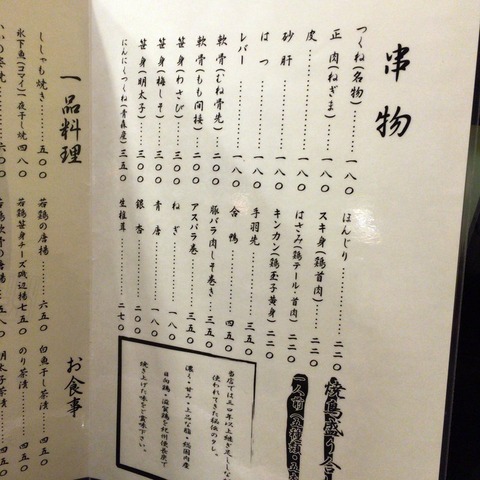 串物
つくね(名物)……一八〇
正肉(ねぎま)……一八〇
皮……一八〇
砂肝……一八〇
はつ……一八〇
レバー……一八〇
軟骨(むね骨先)……二〇〇
軟骨(もも間接)……二〇〇
笹身(わさび)……三〇〇
笹身(梅しそ)……三〇〇
笹身(明太子)……三〇〇
にんにくつくね(青森産)……三五〇
ぼんじり……二二〇
スキ身(鶏首肉)……二二〇
はさみ(鶏テール・首肉)……二二〇
キンカン(鶏玉子黄身)……二二〇
手羽先……三五〇
合鴨……四五〇
豚バラ肉しそ巻き……三五〇
アスパラ巻……三五〇
ねぎ……一八〇
青唐……一八〇
銀杏……二五〇
生椎茸……二七〇
焼鳥盛り合
一人前(五種類・五
当店では三〇年以上継ぎ足ししな
使われてきた秘伝のタレ。
濃く・甘み・上品な脂・総国内産
日向鶏・滋賀鶏を紀州備長炭で
焼き上げた味をご賞味下さい。
一品料理
ししゃも焼き……五〇〇
氷下魚(コマイ)一夜干し焼 四八〇
若鶏の唐揚……六五〇
若鶏笹身チーズ磯辺揚 七五〇
お食事
白魚干し茶漬……四五〇
のり茶漬……四五〇
明太子茶漬……四五〇